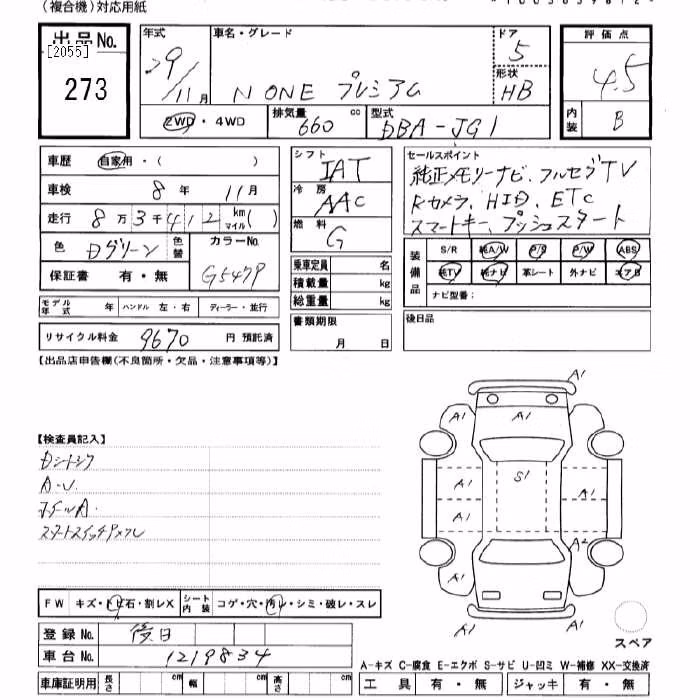 (複合機)対応用紙
出品No.
[2055]
273
年式
29/11月
車名・グレード
N ONE プレミアム
ドア
5
形状
HB
評価点
4.5
内装
B
2WD・4WD
排気量
660 cc
型式
DBA-JG1
車歴 自家用・( )
車検 8年 11月
走行 8万3千412 km マイル( )
色 Dグリーン 色替 カラーNo.
G547P
保証書 有・無
モデル年式 年 ハンドル 左・右 ディーラー・並行
リサイクル料金 9670 円 預託済
シフト
IAT
冷房
AAC
燃料
G
乗車定員 名
積載量 kg
総重量 kg
書類期限
月 日
セールスポイント
純正メモリーナビ、フルセグTV
Rカメラ、HID、ETC
スマートキー、プッシュスタート
装備品
S/R 純A/W P/S P/W ABS
純TV 純ナビ 革シート 外ナビ エアB
ナビ型番:
後日品
【出品店申告欄(不良箇所・欠品・注意事項等)】
【検査員記入】
A・U.
A1
A1 A1 A1
A1 S1 A1
A1 A2
A1 A1
A1 A1
スペア
FW キズ・トビ石・割レX シート内装 コゲ・穴・汚レ・シミ・破レ・スレ
登録No. 後日
車台No. 1219834
車庫証明用 長さ cm 幅 cm 高さ cm
A-キズ C-腐食 E-エクボ S-サビ U-凹ミ W-補修 XX-交換済
工具 有・無 ジャッキ 有・無